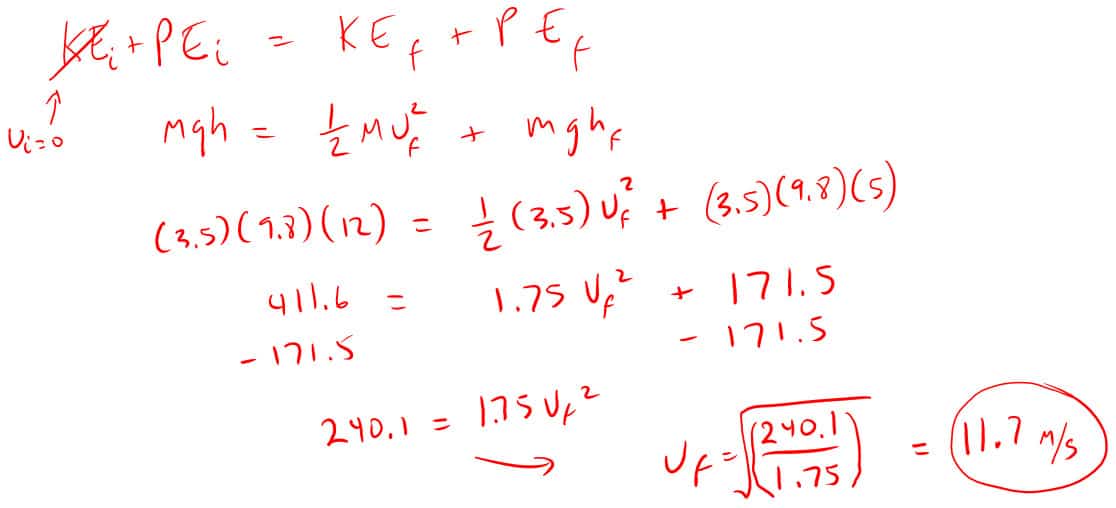 KEᵢ + PEᵢ = KE_f + PE_f
↑
υᵢ=0
mgh = 1/2 mυ_f² + mgh_f
(3.5)(9.8)(12) = 1/2 (3.5) υ_f² + (3.5)(9.8)(5)
411.6 = 1.75 υ_f² + 171.5
- 171.5 - 171.5
240.1 = 1.75 υ_f²
→
υ_f = √(240.1/1.75) = 11.7 m/s